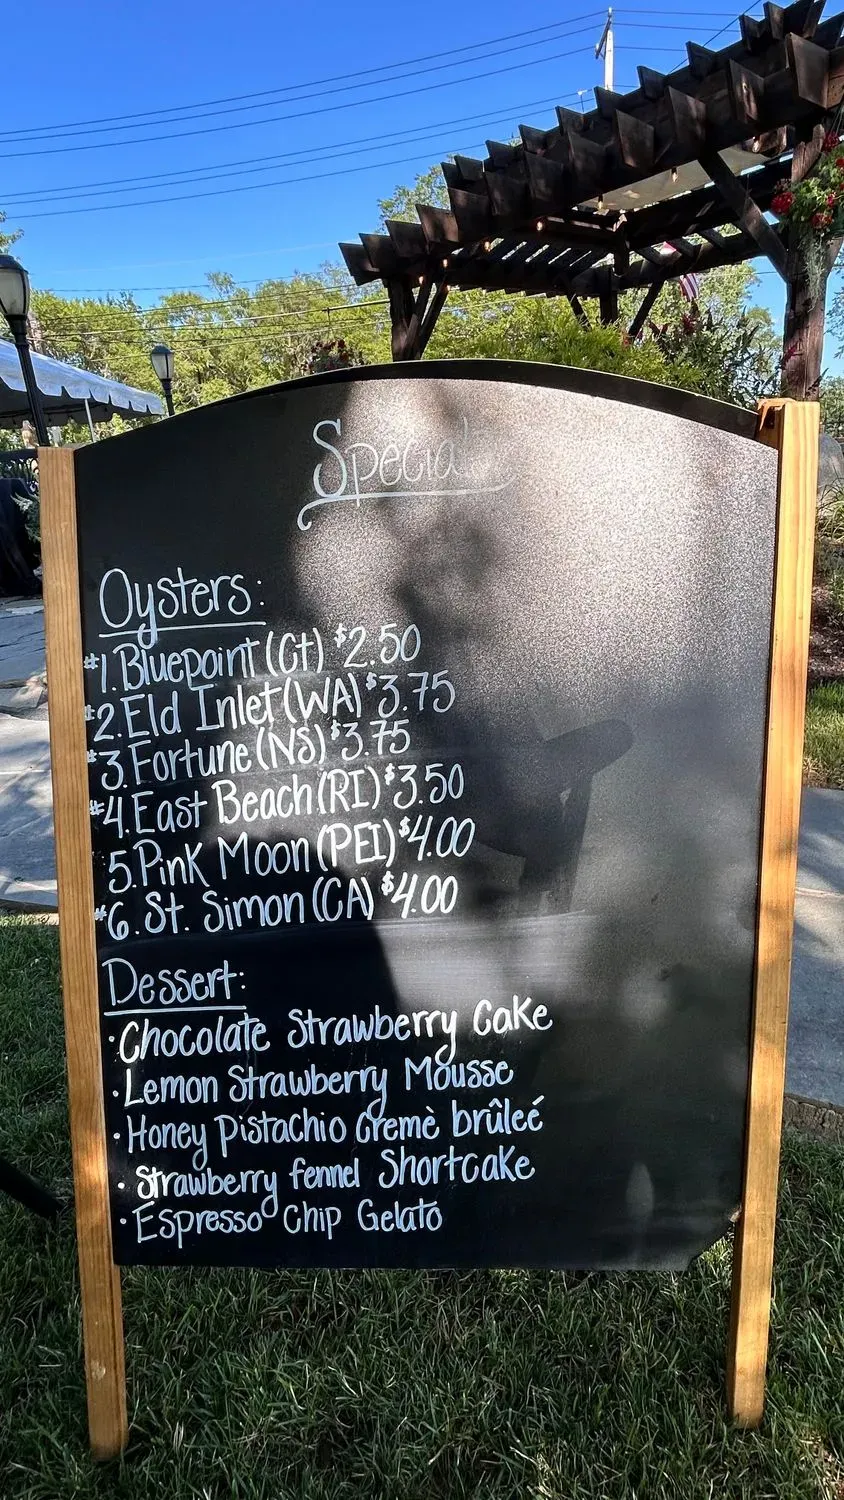 Specials
Oysters:
#1. Bluepoint (Ct) $2.50
#2. Eld Inlet (WA) $3.75
#3. Fortune (NS) $3.75
#4. East Beach (RI) $3.50
5. Pink Moon (PEI) $4.00
#6. St. Simon (CA) $4.00
Dessert:
· Chocolate Strawberry Cake
· Lemon Strawberry Mousse
· Honey Pistachio Cremè brûleé
· Strawberry fennel Shortcake
· Espresso Chip Gelato